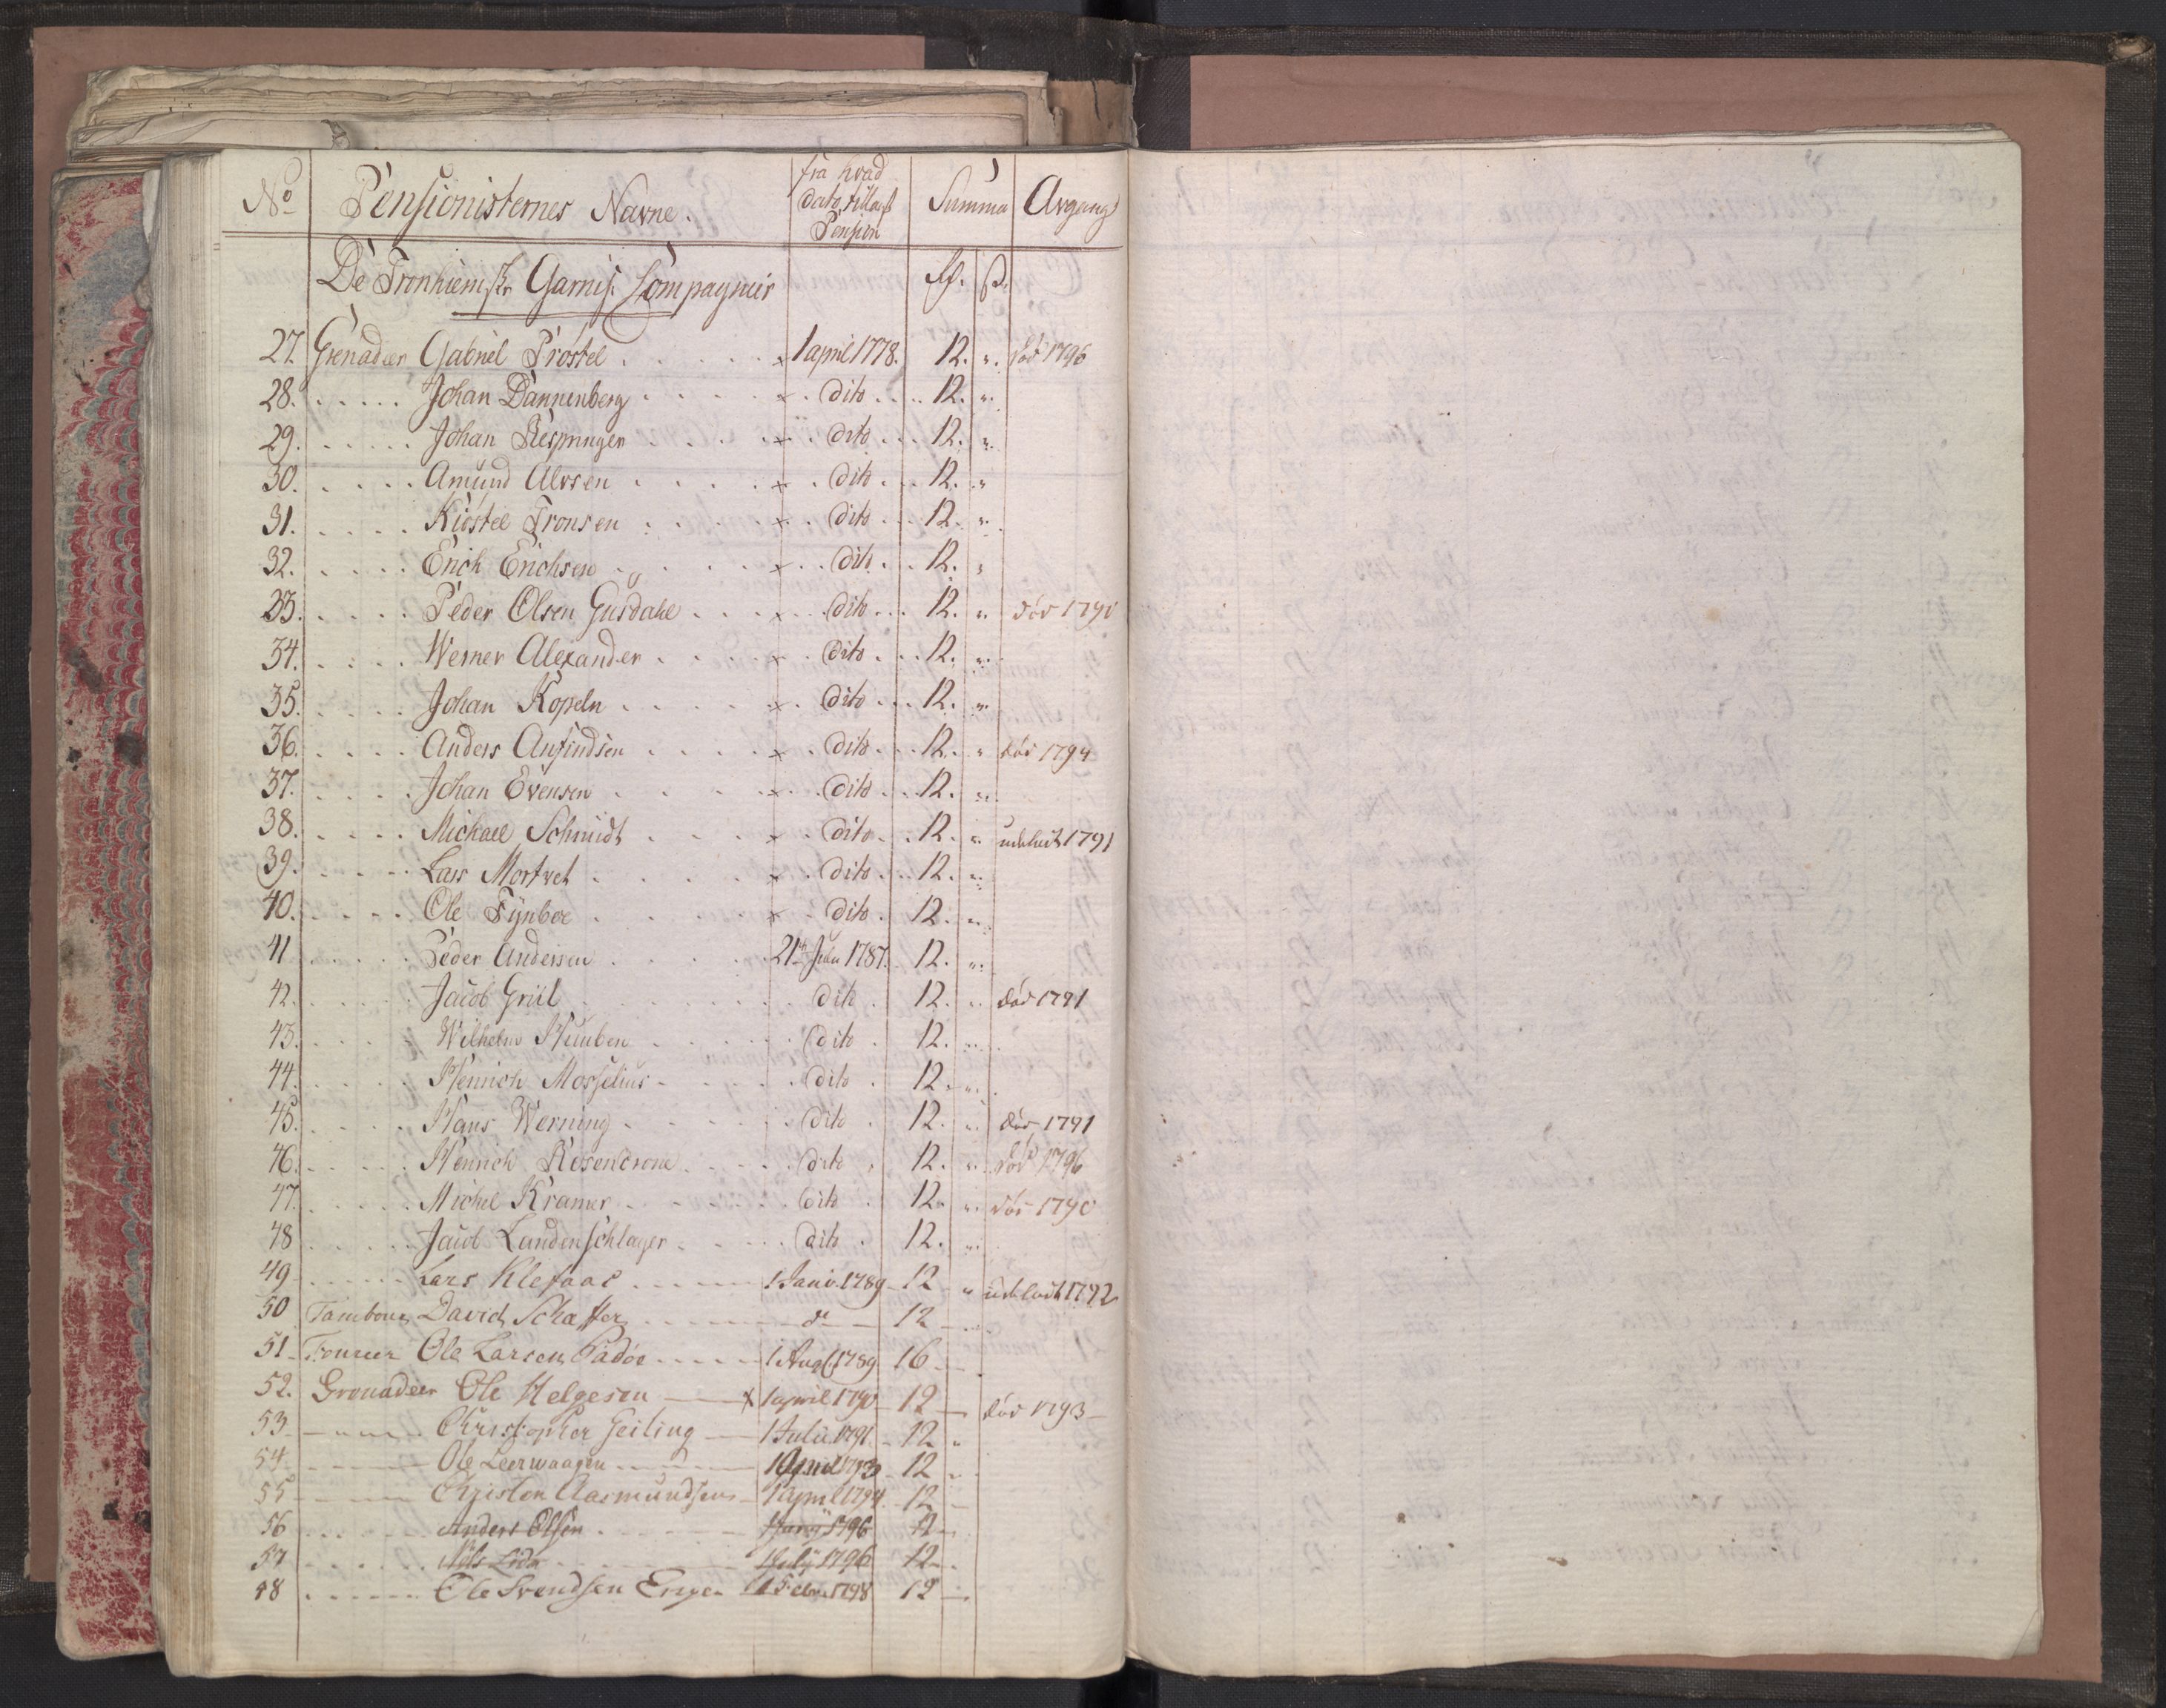 No Pensionisternes Navne. fra hvad dato tillagt Pension Summa Avgang
De Tronhiemske Garnis: Compagnier Rd. s.
27. Grenadeer Gabriel Prostel . . . . . × 1 april 1778. 12. " død 1796
28. . . . . . Johan Dannenberg . . . . × . dito . . . 12. "
29. . . . . . Johan . . . . × . dito . . . 12. "
30. . . . . Amund Alvsen . . . . × . dito . . . 12. "
31. . . . . Kiøstel Tronsen . . . . × . dito . . . 12. "
32. . . . . Erich Erichsen . . . . × . . dito . . . 12. "
33. . . . . Peder Olsen Gusdahl . . . × . . dito . . . 12. " død 1790
34. . . . . Werner Alexander . . . . × . dito . . . 12. "
35. . . . . Johan Kopeln . . . . × . dito . . . 12. "
36. . . . . Anders Anfindsen . . . . × . dito . . . 12. " død 1794
37. . . . . Johan Evensen . . . . × . dito . . . 12. "
38. . . . . Michael Schmidt . . . . × . dito . . . 12. " udeladt 1791
39. . . . . Lars Mortvet . . . . × . dito . . . 12. "
40. . . . . Ole Fynboe . . . . × . dito . 12. "
41 . . . . . Peder Andersen . . . . . 21de Julii 1787. 12. "
42. . . . . . Jacob Griil . . . . . . dito . 12. " død 1791
43. . . . . Wilhelm . . . . . dito . 12. "
44. . . . . . Henrich Mosselius . . . . . dito . 12. "
45. . . . . . Hans Werning . . . . . dito . 12. " død 1791
46. . . . . . Henrich Rosencrone . . . . dito . 12. " død 1796
47. . . . . . Michel Kramer . . . . . dito . 12. " død 1790
48 . . . . . Jacob Landenschlager . . . . dito . 12. "
49 . . . . . Lars Klefaas . . . . 1 Janv. 1789 12 " udeladt 1792
50 Tambour David Schaffer . . . . do 12
51 Foureer Ole Larsen Rådøe . . . . 1 Aug. 1789 16
52. Grenadeer Ole Helgesen × 1 april 1790 12 død 1793
53 Christopher Geiling 1 Julii 1791. 12 "
54 Ole Leerwaagen 1 April 1793 12
55 Christen Aasmundsen 1 april 1794. 12
56 . . . . . Anders Olsen . . . . 1 Janij 1796 12
57 . . . . . Nils Lida . . . . 1 July 1796 12
58 . . . . . Ole Svendsen 1 Febr. 1798 12